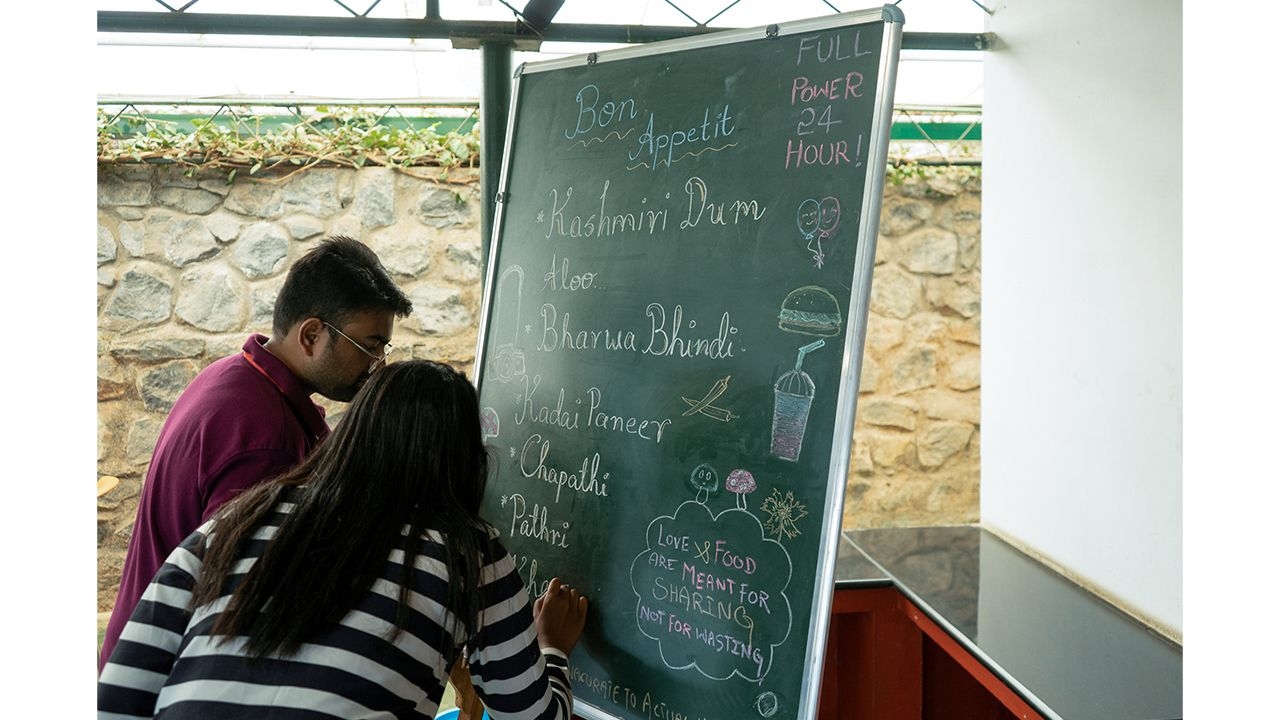 Bon
Appetit
FULL
POWER
24
HOUR!
* Kashmiri Dum
Aloo...
* Bharwa Bhindi.
* Kadai Paneer
* Chapathi
* Pathri
LOVE & FOOD
ARE MEANT FOR
SHARING
NOT FOR WASTING
TO